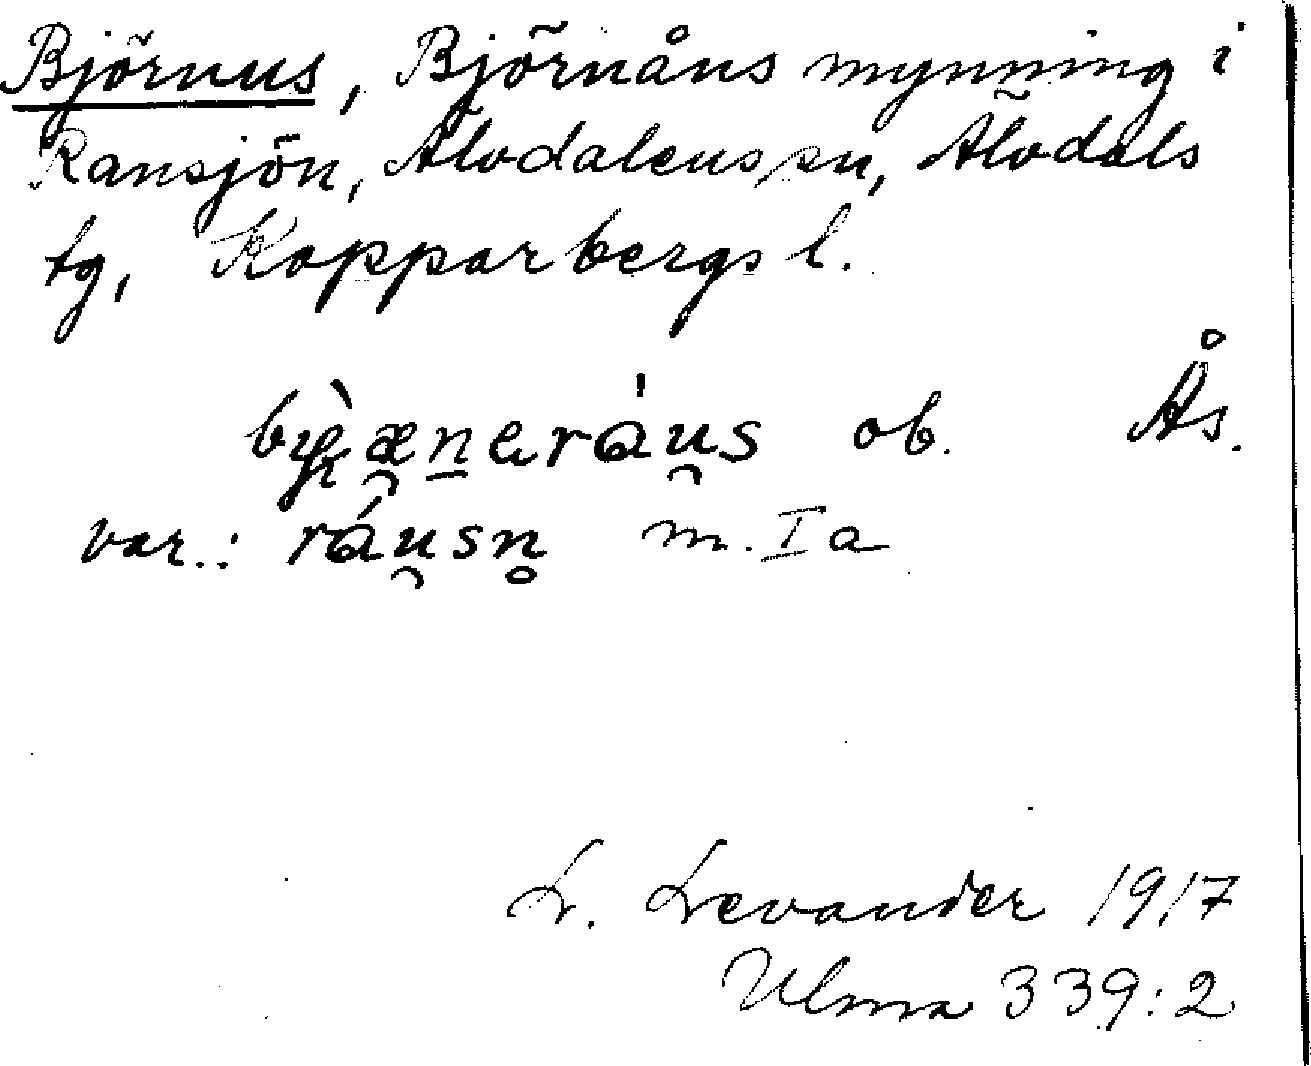 Björnus, Björnåns mynning i
Ransjön, Älvdalens sn, Älvdals
tg, Kopparbergs l.
ob. Ås.
var.: ráu̯sn̥ m. I a
L. Levander 1917
Ulma 339:2